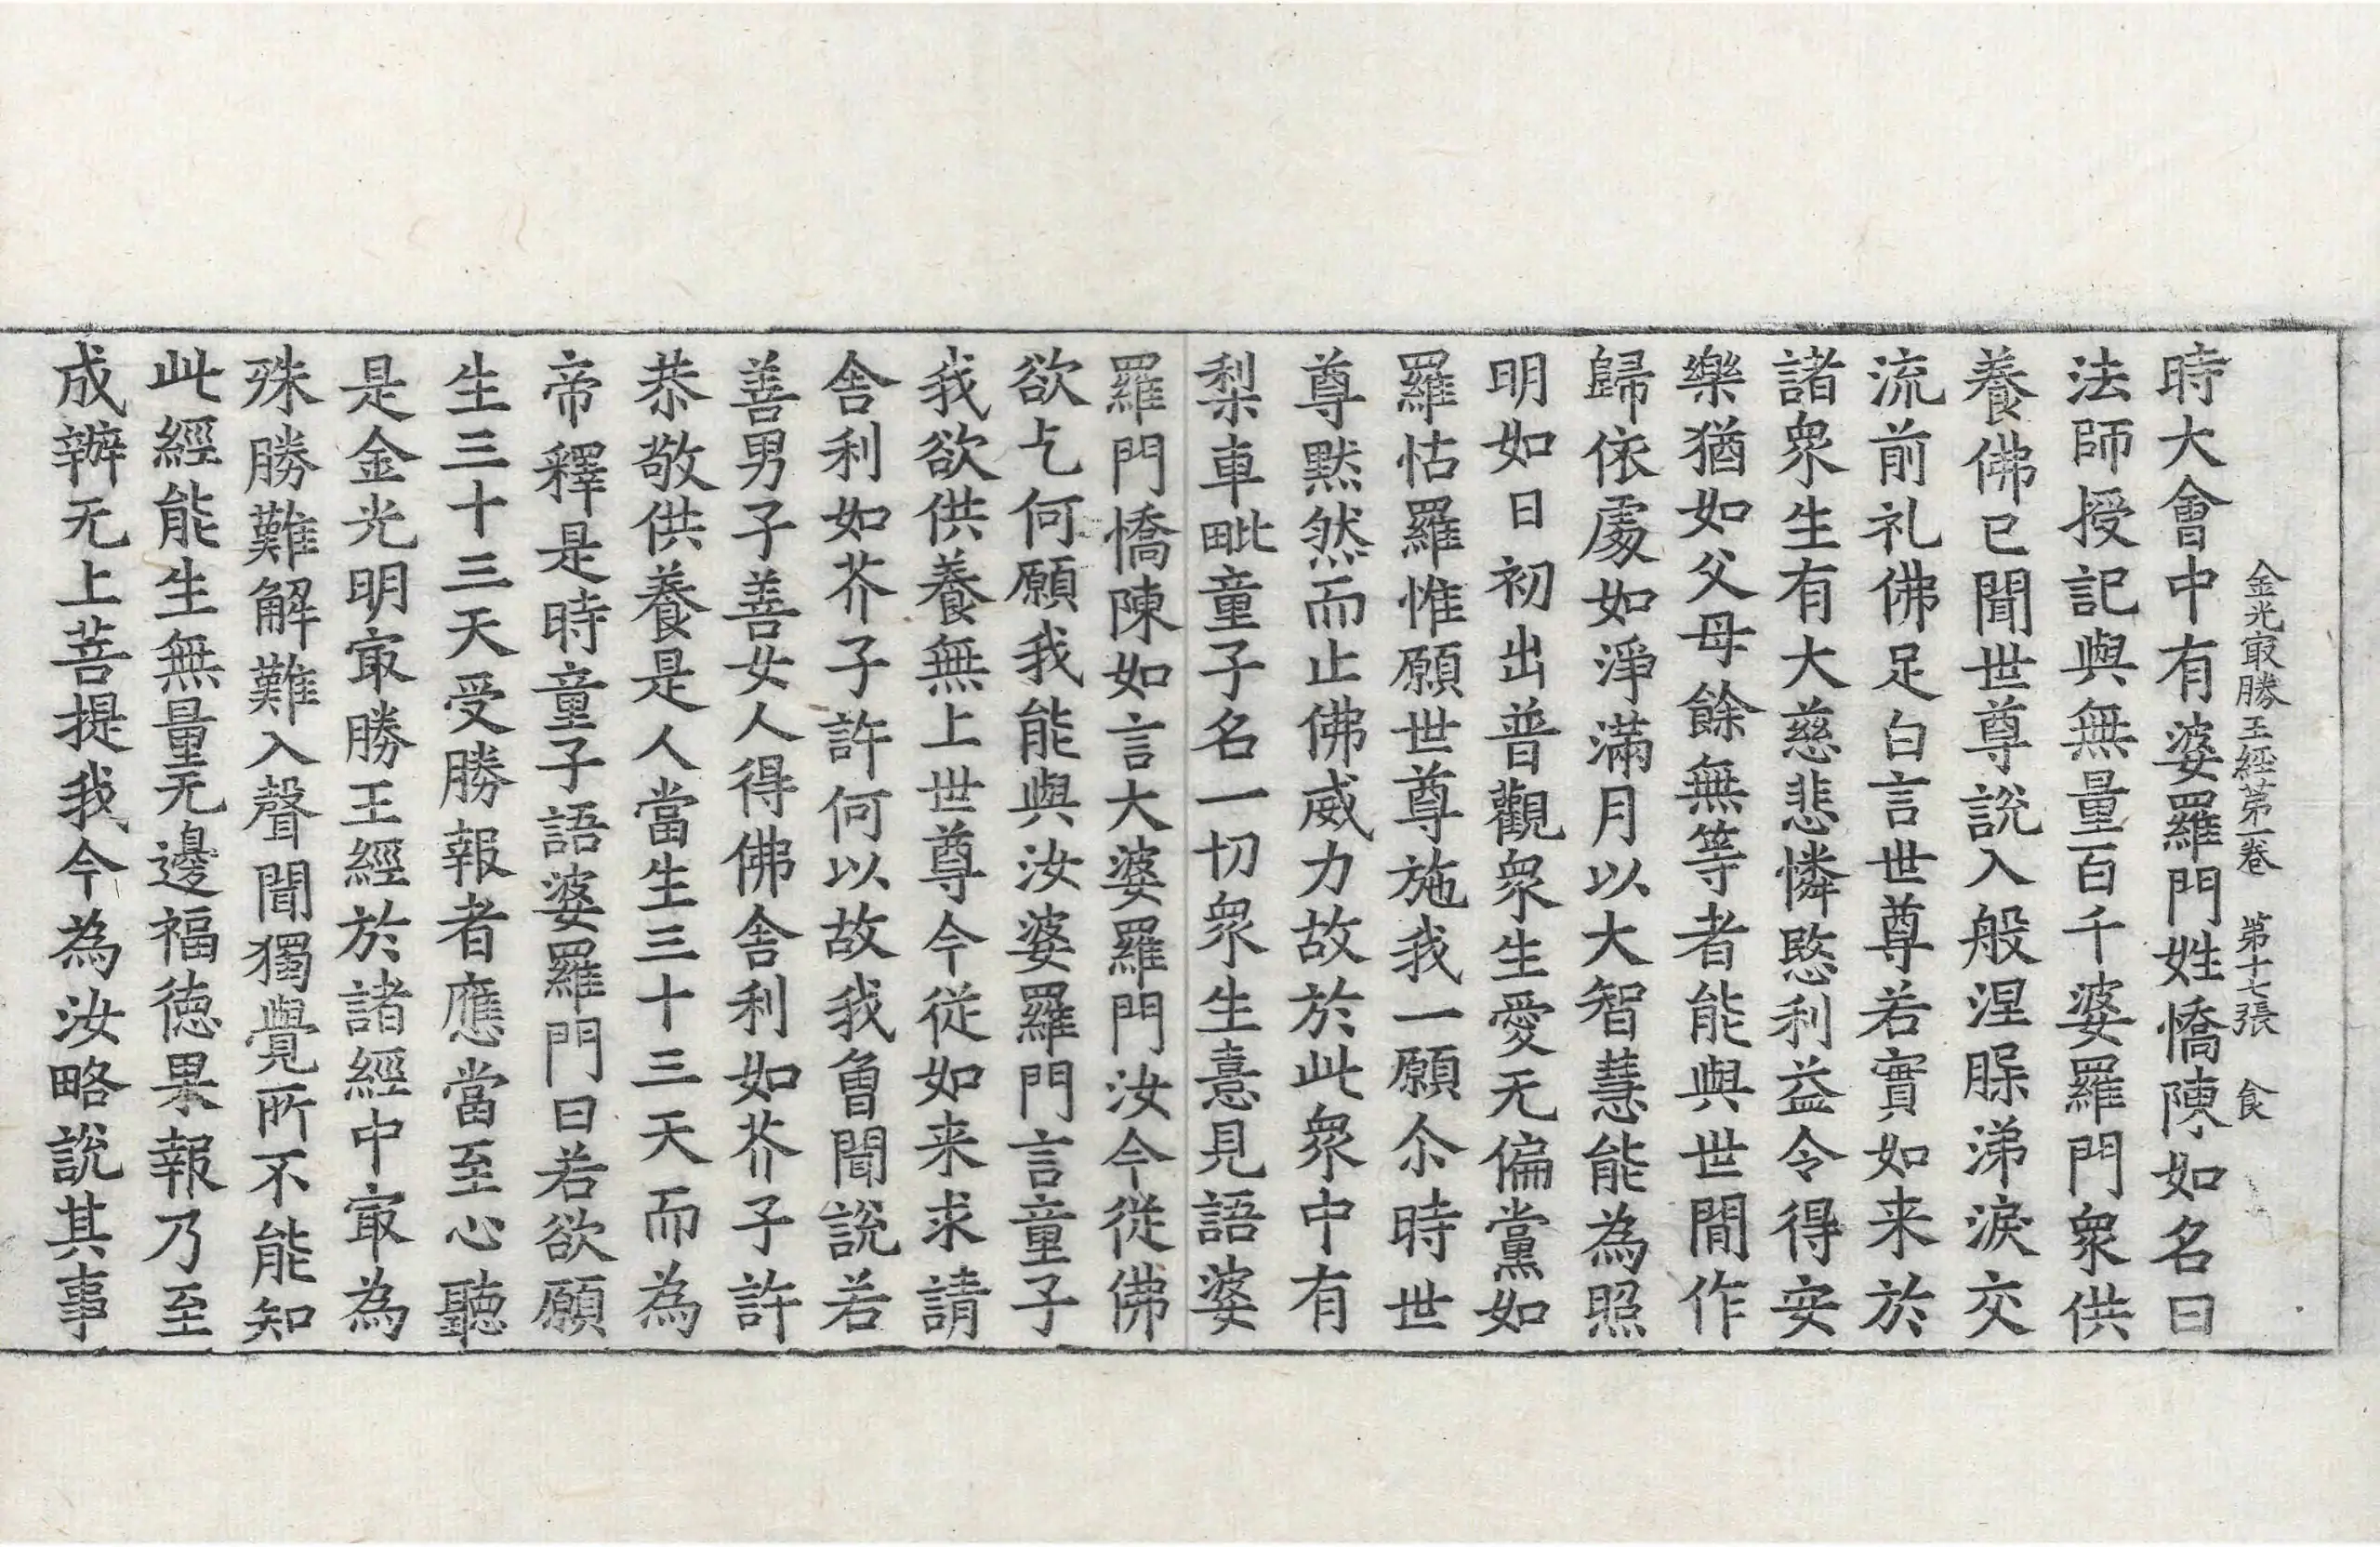 金光㝡勝王經第一卷 第十七張 食
時大會中有婆羅門姓憍陳如名曰
法師授記與無量百千婆羅門衆供
養佛已聞世尊說入般涅脲涕淚交
流前礼佛足白言世尊若實如来於
諸衆生有大慈悲憐愍利益令得安
樂猶如父母餘無等者能與世間作
歸依處如淨滿月以大智慧能為照
明如日初出普觀衆生愛无偏黨如
羅怙羅惟願世尊施我一願尒時世
尊黙然而止佛威力故於此衆中有
梨車毗童子名一切衆生憙見語婆
羅門憍陳如言大婆羅門汝今從佛
欲乞何願我能與汝婆羅門言童子
我欲供養無上世尊今從如来求請
舍利如芥子許何以故我曽聞說若
善男子善女人得佛舍利如芥子許
恭敬供養是人當生三十三天而為
帝釋是時童子語婆羅門曰若欲願
生三十三天受勝報者應當至心聽
是金光明㝡勝王經於諸經中㝡為
殊勝難解難入聲聞獨覺所不能知
此經能生無量无邊福徳果報乃至
成辦无上菩提我今為汝略說其事